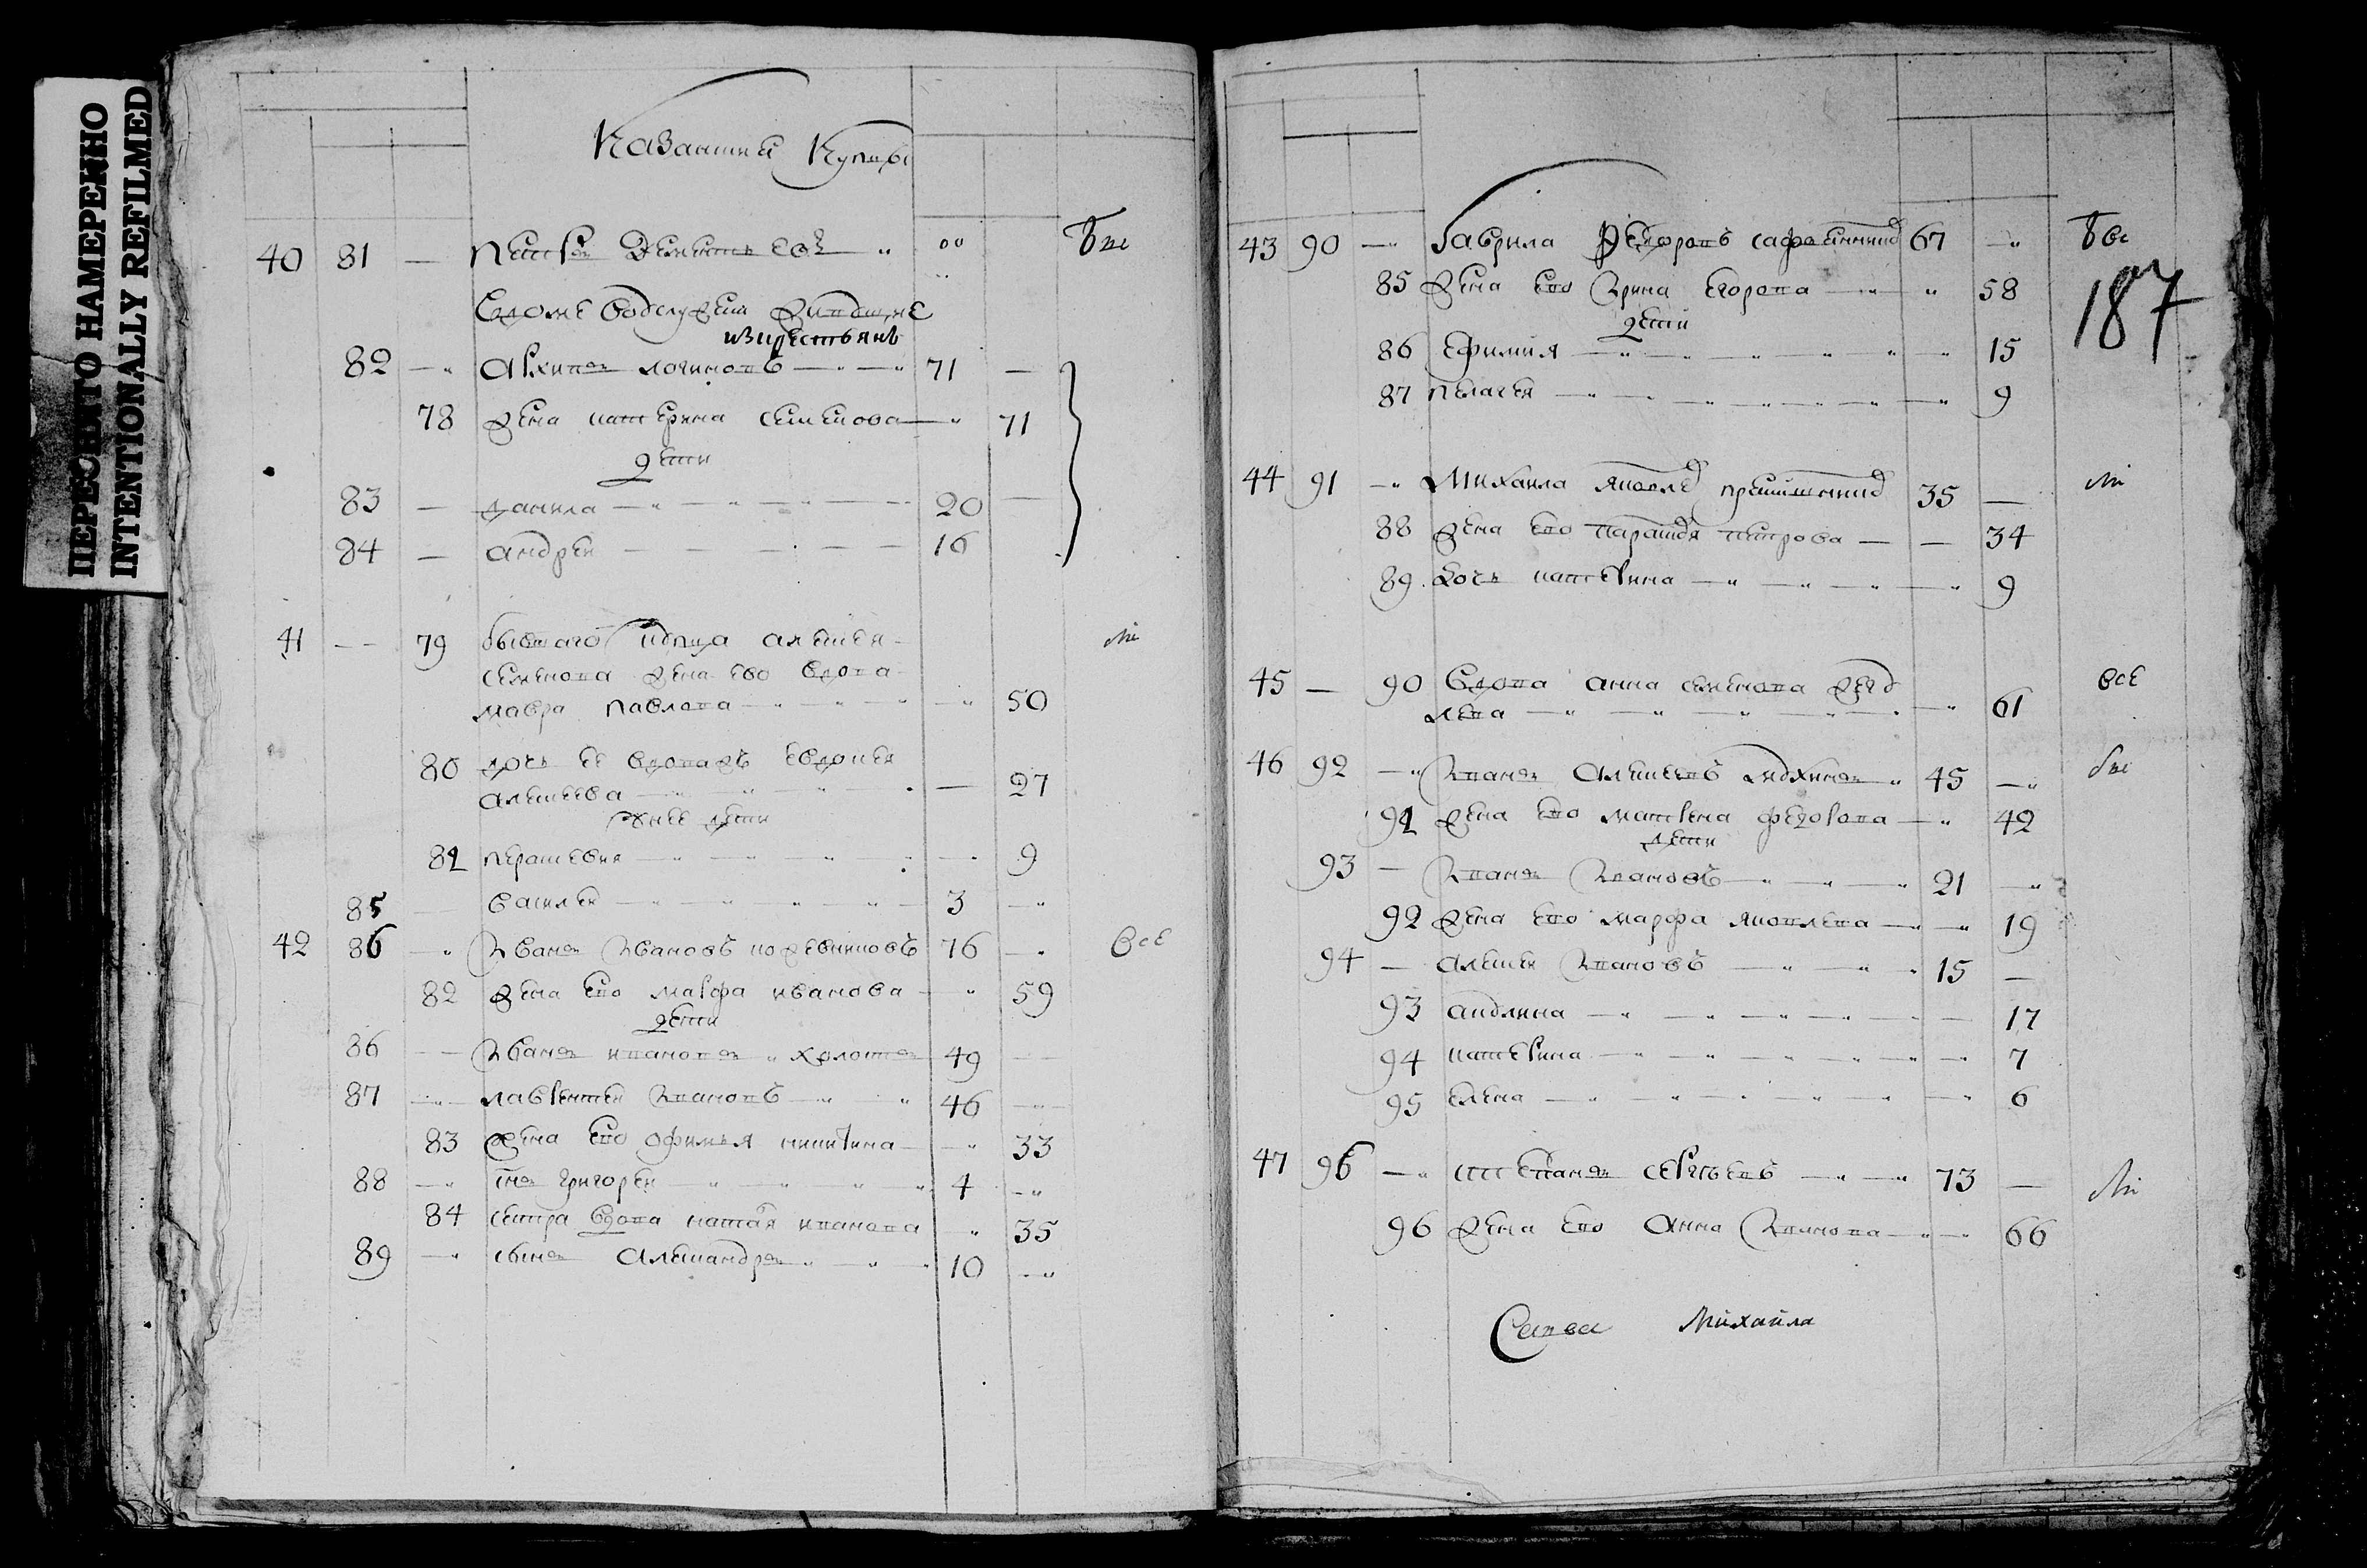 ПЕРЕСНЯТО НАМЕРЕННО
INTENTIONALLY REFILMED
Казанския Купцы
40 81 — Петръ Дементьевъ " " все
вдоме
из крестьянъ
82 — " Архипъ логиновъ — " — " 71 —
78 жена катерина семенова — " 71
дети
83 — данила — " — " — " — 20 —
84 — андрей — — — — — 16
41 — — 79 бывшаго купца алексея все
семенова жена ево вдова
мавра павлова — " — " — " — " 50
80 дочь ее вдоваж евдокея
алексеева — " — " — 27
у нее дети
81 парасковия — " — " " " — " 9
85 — василей — " — " " — " — 3 — "
42 86 — " Иванъ Ивановъ кожевниковъ 76 — " все
82 жена ево марфа иванова — " 59
дети
86 — — Иванъ ивановъ " холостъ 49 — —
87 — " — лаврентей Ивановъ — " " 46 — " —
83 жена ево офимья никитина — — " 33
88 — " григорей — " — " " — " 4 — "
84 сестра вдова наталя иванова " 35
89 — " сынъ Александръ " — " — " 10 — "
43 90 — " Гаврила Федоровъ 67 — " все
187
85 жена ево Ирина егорова — " — " 58
дети
86 ефимия — " — " — " — " — " — " 15
87 пелагея — " — " — " — " — " — " — " 9
44 91 — " Михаила яковлев 35 — все
88 жена ево парасковя петрова — — 34
89 дочь катерина — " — " — " — " 9
45 — 90 вдова анна семенова все
лева — " — " — " — " — " 61
46 92 — " Иванъ Алексеевъ " 45 — " все
91 жена ево матрена федорова — " 42
дети
93 — Иванъ Ивановъ — " — " — " 21 — "
92 жена ево марфа яковлева — " — " 19
94 — алексей Ивановъ — " — " — " 15 —
93 акулина — " — " — " — " — — 17
94 катерина — " — " — " — " — " — " 7
95 елена — " — " — " — " — " — " 6
47 96 — " степанъ сергеевъ — " — " 73 — все
96 жена ево Анна Иванова — " — " 66
Михаила